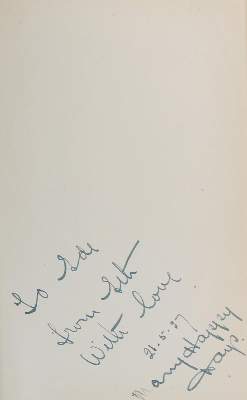 To Ede
from Seth
With love
21-5-37
Many Happy
Days.